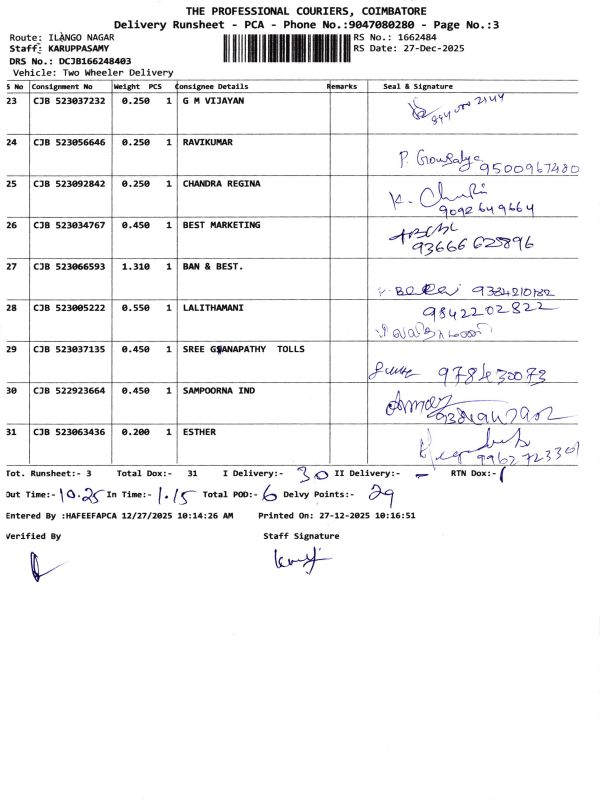 THE PROFESSIONAL COURIERS, COIMBATORE
Delivery Runsheet - PCA - Phone No.:9047080280 - Page No.:3
Route: ILANGO NAGAR RS No.: 1662484
Staff: KARUPPASAMY RS Date: 27-Dec-2025
DRS No.: DCJB166248403
Vehicle: Two Wheeler Delivery
S No Consignment No Weight PCS Consignee Details Remarks Seal & Signature
23 CJB 523037232 0.250 1 G M VIJAYAN
24 CJB 523056646 0.250 1 RAVIKUMAR P. Gowsalya 9500967480
25 CJB 523092842 0.250 1 CHANDRA REGINA K. 9092649664
26 CJB 523034767 0.450 1 BEST MARKETING 93666628896
27 CJB 523066593 1.310 1 BAN & BEST. 9384210182
28 CJB 523005222 0.550 1 LALITHAMANI 9842202822
29 CJB 523037135 0.450 1 SREE GNANAPATHY TOLLS 978430073
30 CJB 522923664 0.450 1 SAMPOORNA IND
31 CJB 523063436 0.200 1 ESTHER 9962723301
Tot. Runsheet:- 3 Total Dox:- 31 I Delivery:- 30 II Delivery:- - RTN Dox:- 1
Out Time:- 10.25 In Time:- 1.15 Total POD:- 6 Delvy Points:- 29
Entered By :HAFEEFAPCA 12/27/2025 10:14:26 AM Printed On: 27-12-2025 10:16:51
Verified By Staff Signature